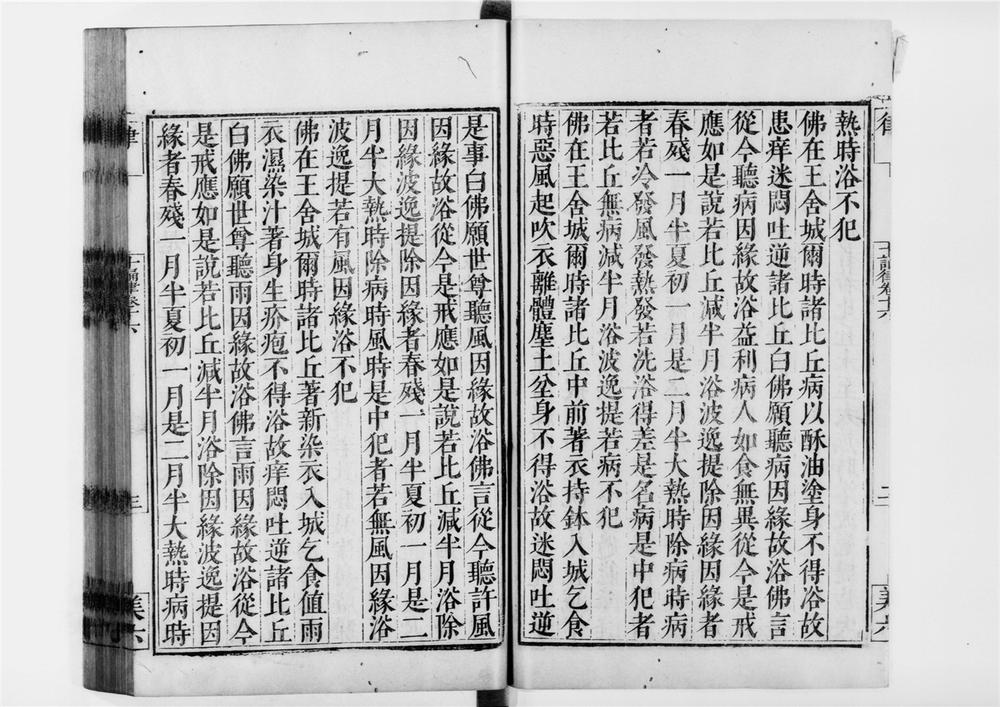 熱時浴不犯
佛在王舍城爾時諸比丘病以酥油塗身不得浴故
患痒迷悶吐逆諸比丘白佛願聽病因緣故浴佛言
從今聽病因緣故浴益利病人如食無異從今是戒
應如是說若比丘減半月浴波逸提除因緣因緣者
春殘一月半夏初一月是二月半大熱時除病時病
者若冷發風發熱發若洗浴得差是名病是中犯者
若比丘無病減半月浴波逸提若病不犯
佛在王舍城爾時諸比丘中前著衣持鉢入城乞食
時惡風起吹衣離體塵土坌身不得浴故迷悶吐逆
律
十誦律卷十六
二
美六
是事白佛願世尊聽風因緣故浴佛言從今聽許風
因緣故浴從今是戒應如是說若比丘減半月浴除
因緣波逸提除因緣者春殘一月半夏初一月是二
月半大熱時除病時風時是中犯者若無風因緣浴
波逸提若有風因緣浴不犯
佛在王舍城爾時諸比丘著新染衣入城乞食值雨
衣濕染汁著身生疥疱不得浴故痒悶吐逆諸比丘
白佛願世尊聽雨因緣故浴佛言雨因緣故浴從今
是戒應如是說若比丘減半月浴除因緣波逸提因
緣者春殘一月半夏初一月是二月半大熱時病時
律
十誦律卷十六
三
美六